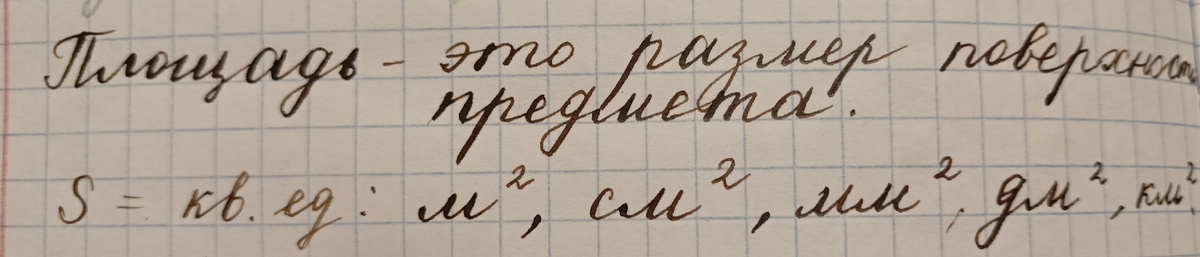 Площадь - это размер поверхности
предмета.
S = кв. ед: м², см², мм², дм², км².